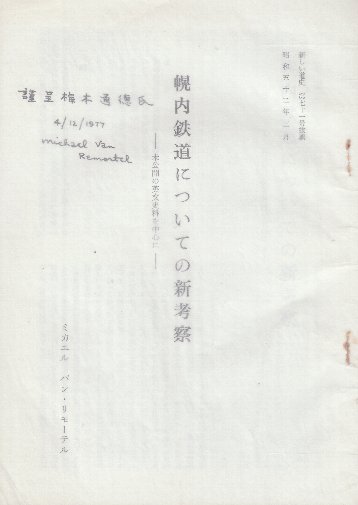 新しい道史 (の七十一号抜萃
昭和五十二年一月
幌内鉄道についての新考察
――未公開の英文史料を中心に――
謹呈 梅木通徳氏
4/12/1977
Michael Van
Remortel
ミカエル バン・リモーテル